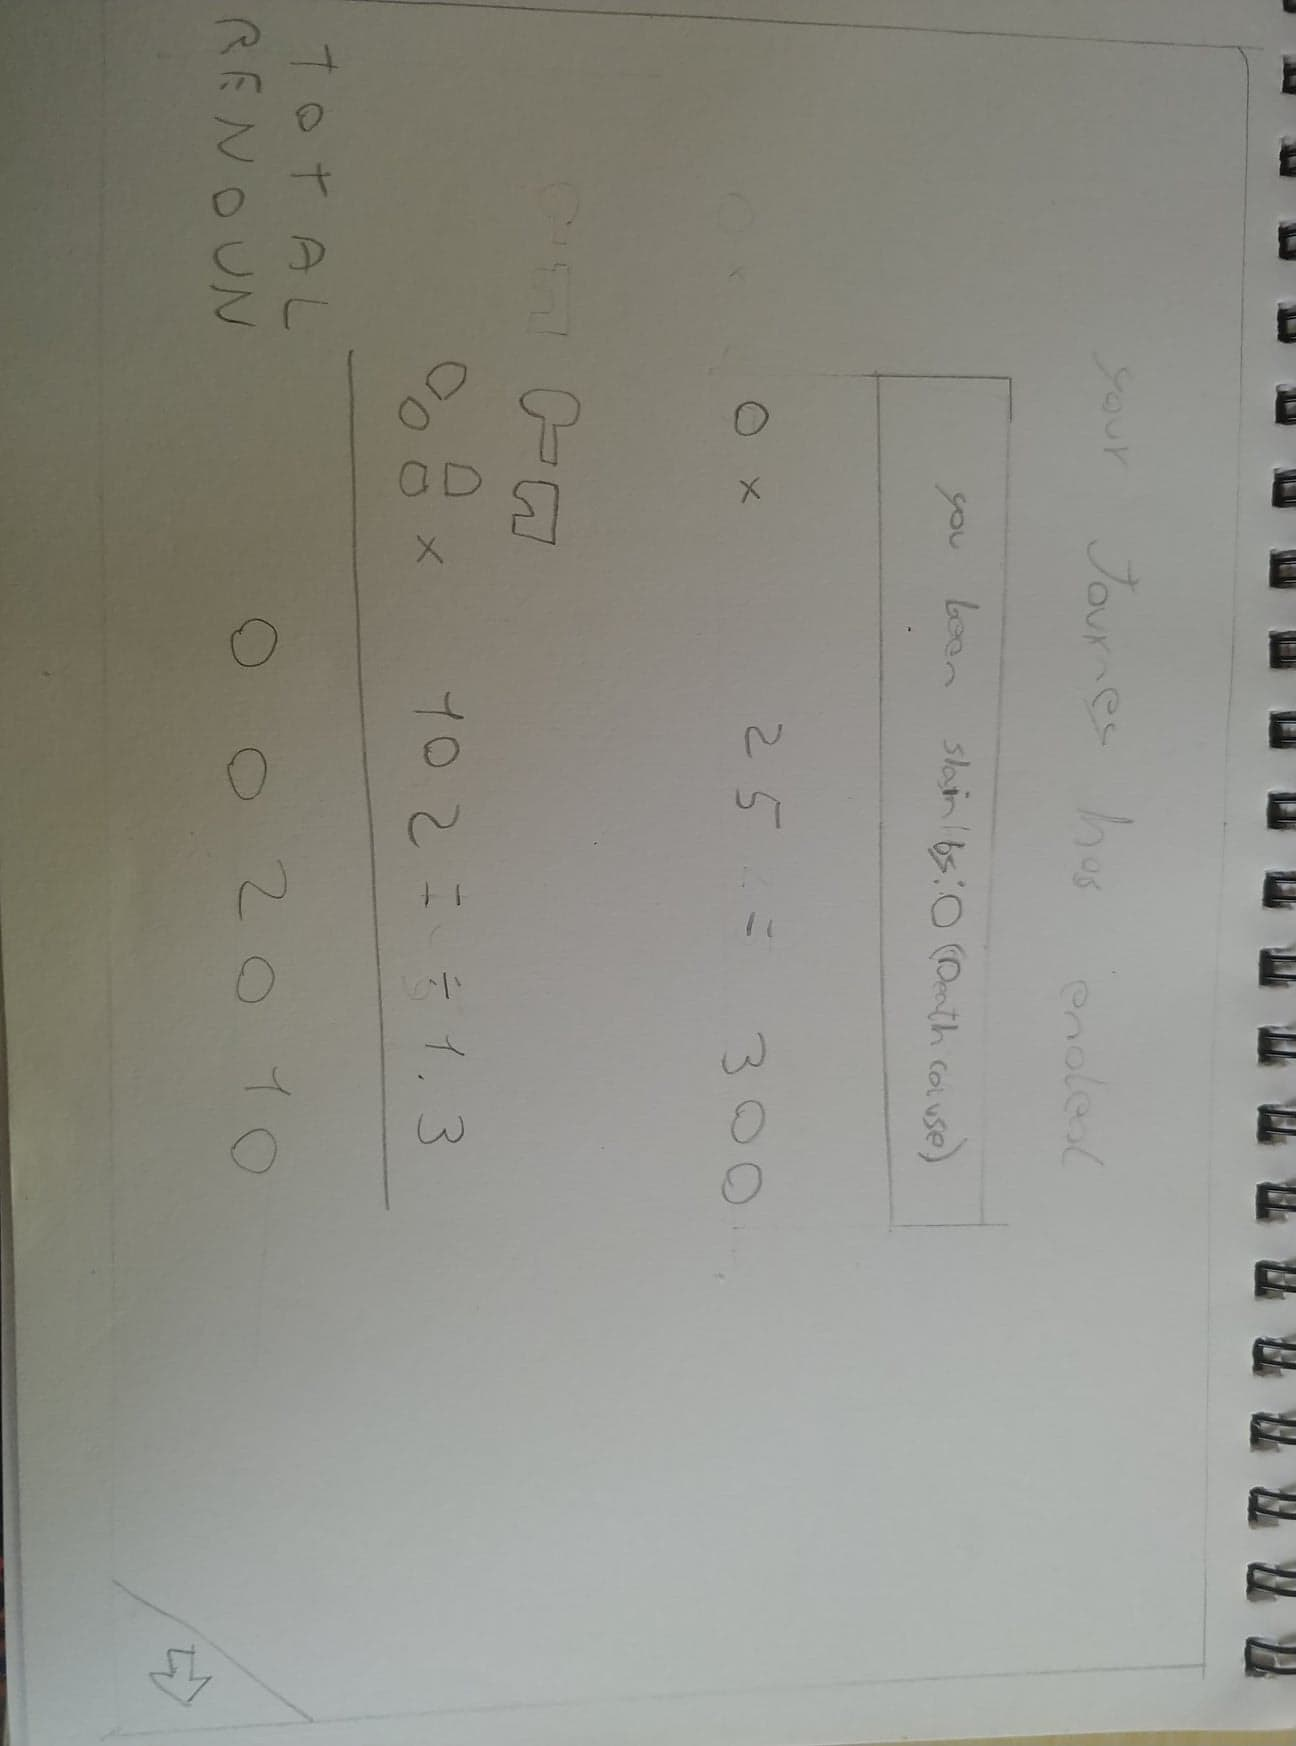 your Journey has ended
you been slain/by:O (Death couse)
O x 25 = 300
x 102 = ÷ 1.3
TOTAL
RENOUN
0 0 2 0 1 0